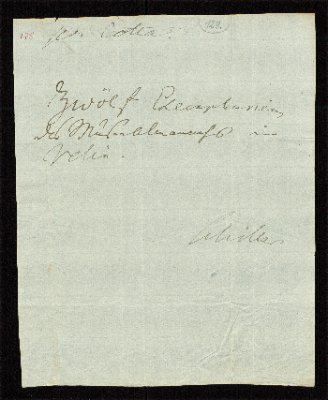 Hrn Cotta.
128.
Zwölf Exemplarien
des Musenalmanachs in
Velin.
Schiller